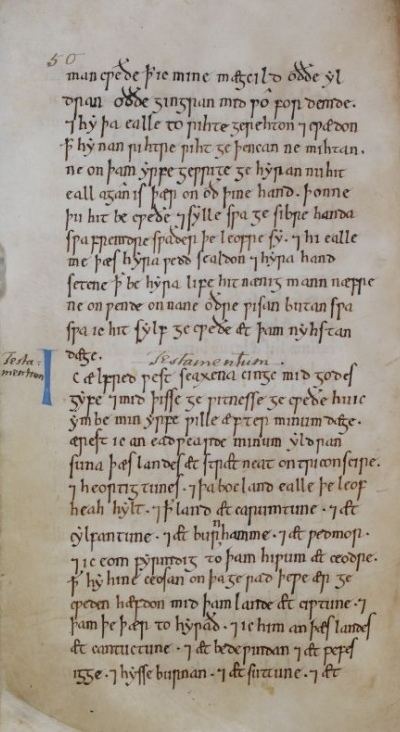 50
man cwede þ ic mine mægcild oððe yl
dran oððe gingran mid wo fordemde.
⁊ hy þa ealle to rihte gerehton ⁊ cwædon
þ hy nan rihtre riht geþencan ne mihtan.
ne on þam yrfegewrite gehyran nu hit
eall agan is þær on oð þine hand. þonne
þu hit becweðe ⁊ sylle swa gesibre handa
swa fremdre swaðer þe leofre sy. ⁊ hi ealle
me þæs hyra wedd sealdon ⁊ hyra hand
setene þ be hyra life hit nænig mann næfre
ne onwende on nane oðre wisan butan swa
swa ic hit sylf gecweðe æt þam nyhstan
dæge. Testamentum.
Testa-
mentum
Ic ælfred westseaxena cinge mid godes
gyfe ⁊ mid þisse gewitnesse gecweðe hu ic
ymbe min yrfe wille æfter minum dæge.
ærest ic an eadwearde minum yldran
suna þæs landes æt strætneat on triconscire.
⁊ heortigtunes. ⁊ þa bocland ealle þe leof
heah hylt. ⁊ þ land æt carumtune. ⁊ æt
cylfantune. ⁊ æt burnhamme. ⁊ æt wedmor.
⁊ ic eom fyrmdig to þam hiwum æt ceodre.
þ hy hine ceosan on þa gerad þe we ær ge
cweden hæfdon mid þam lande æt ciwtune. ⁊
þam þe þær to hyrað. ⁊ ic him an þæs landes
æt cantuctune. ⁊ æt bedewindan ⁊ æt pefes
igge. ⁊ hysseburnan. ⁊ æt suttune. ⁊ æt